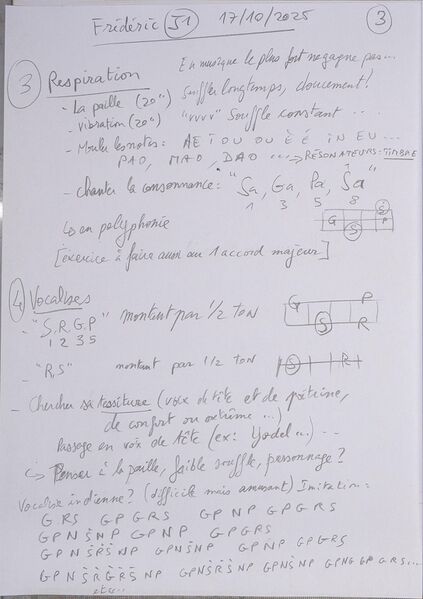 Frédéric J1 17/10/2025 3
En musique le plus fort ne gagne pas...
3 Respiration
- La paille (20'') Souffler longtemps, doucement!
- Vibration (20'') "vvvv" Souffle constant ...
- Mouler les notes: A E I O U OU È É IN EU...
PAO, MAO, DAO ...→ RÉSONATEURS: TIMBRE
- Chanter la consonnance: "Sa, Ga, Pa, Ṡa"
1 3 5 8
↳ en polyphonie
G Ṡ
S
[exercice à faire aussi sur 1 accord majeur]
4 Vocalises
- "S.R.G.P" montant par 1/2 ton
1 2 3 5
G P
S R
- "R,S" montant par 1/2 ton
S R
- Chercher sa tessiture (voix de tête et de poitrine,
de confort ou extrême ...)
Passage en voix de tête (ex: Yodel ...) ...
↳ Penser à la paille, faible souffle, personnage?
Vocalise indienne? (difficile mais amusant) Imitation:
G RS GP G R S G P N P G P G R S
G P N Ṡ N P G P N P G P G R S
G P N Ṡ Ṙ Ṡ N P G P N Ṡ N P G P N P G P G R S
G P N Ṡ Ṙ Ġ Ṙ Ṡ N P G P N Ṡ Ṙ Ṡ N P G P N Ṡ N P G P N G G P G R S...
etc...